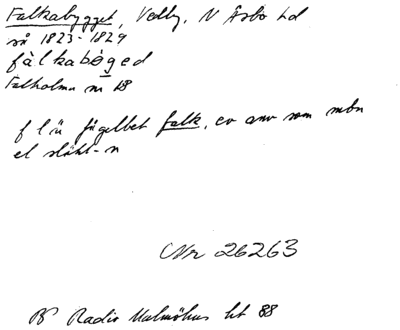 Falkabygget, Vedby, N Åsbo hd
så 1823-1829
fàlkabøged
Falholma nr 18
f l ä fågelbet falk, ev anv som mbn
el släkt-n
Nr 26263
BP Radio Malmöhus ht 88